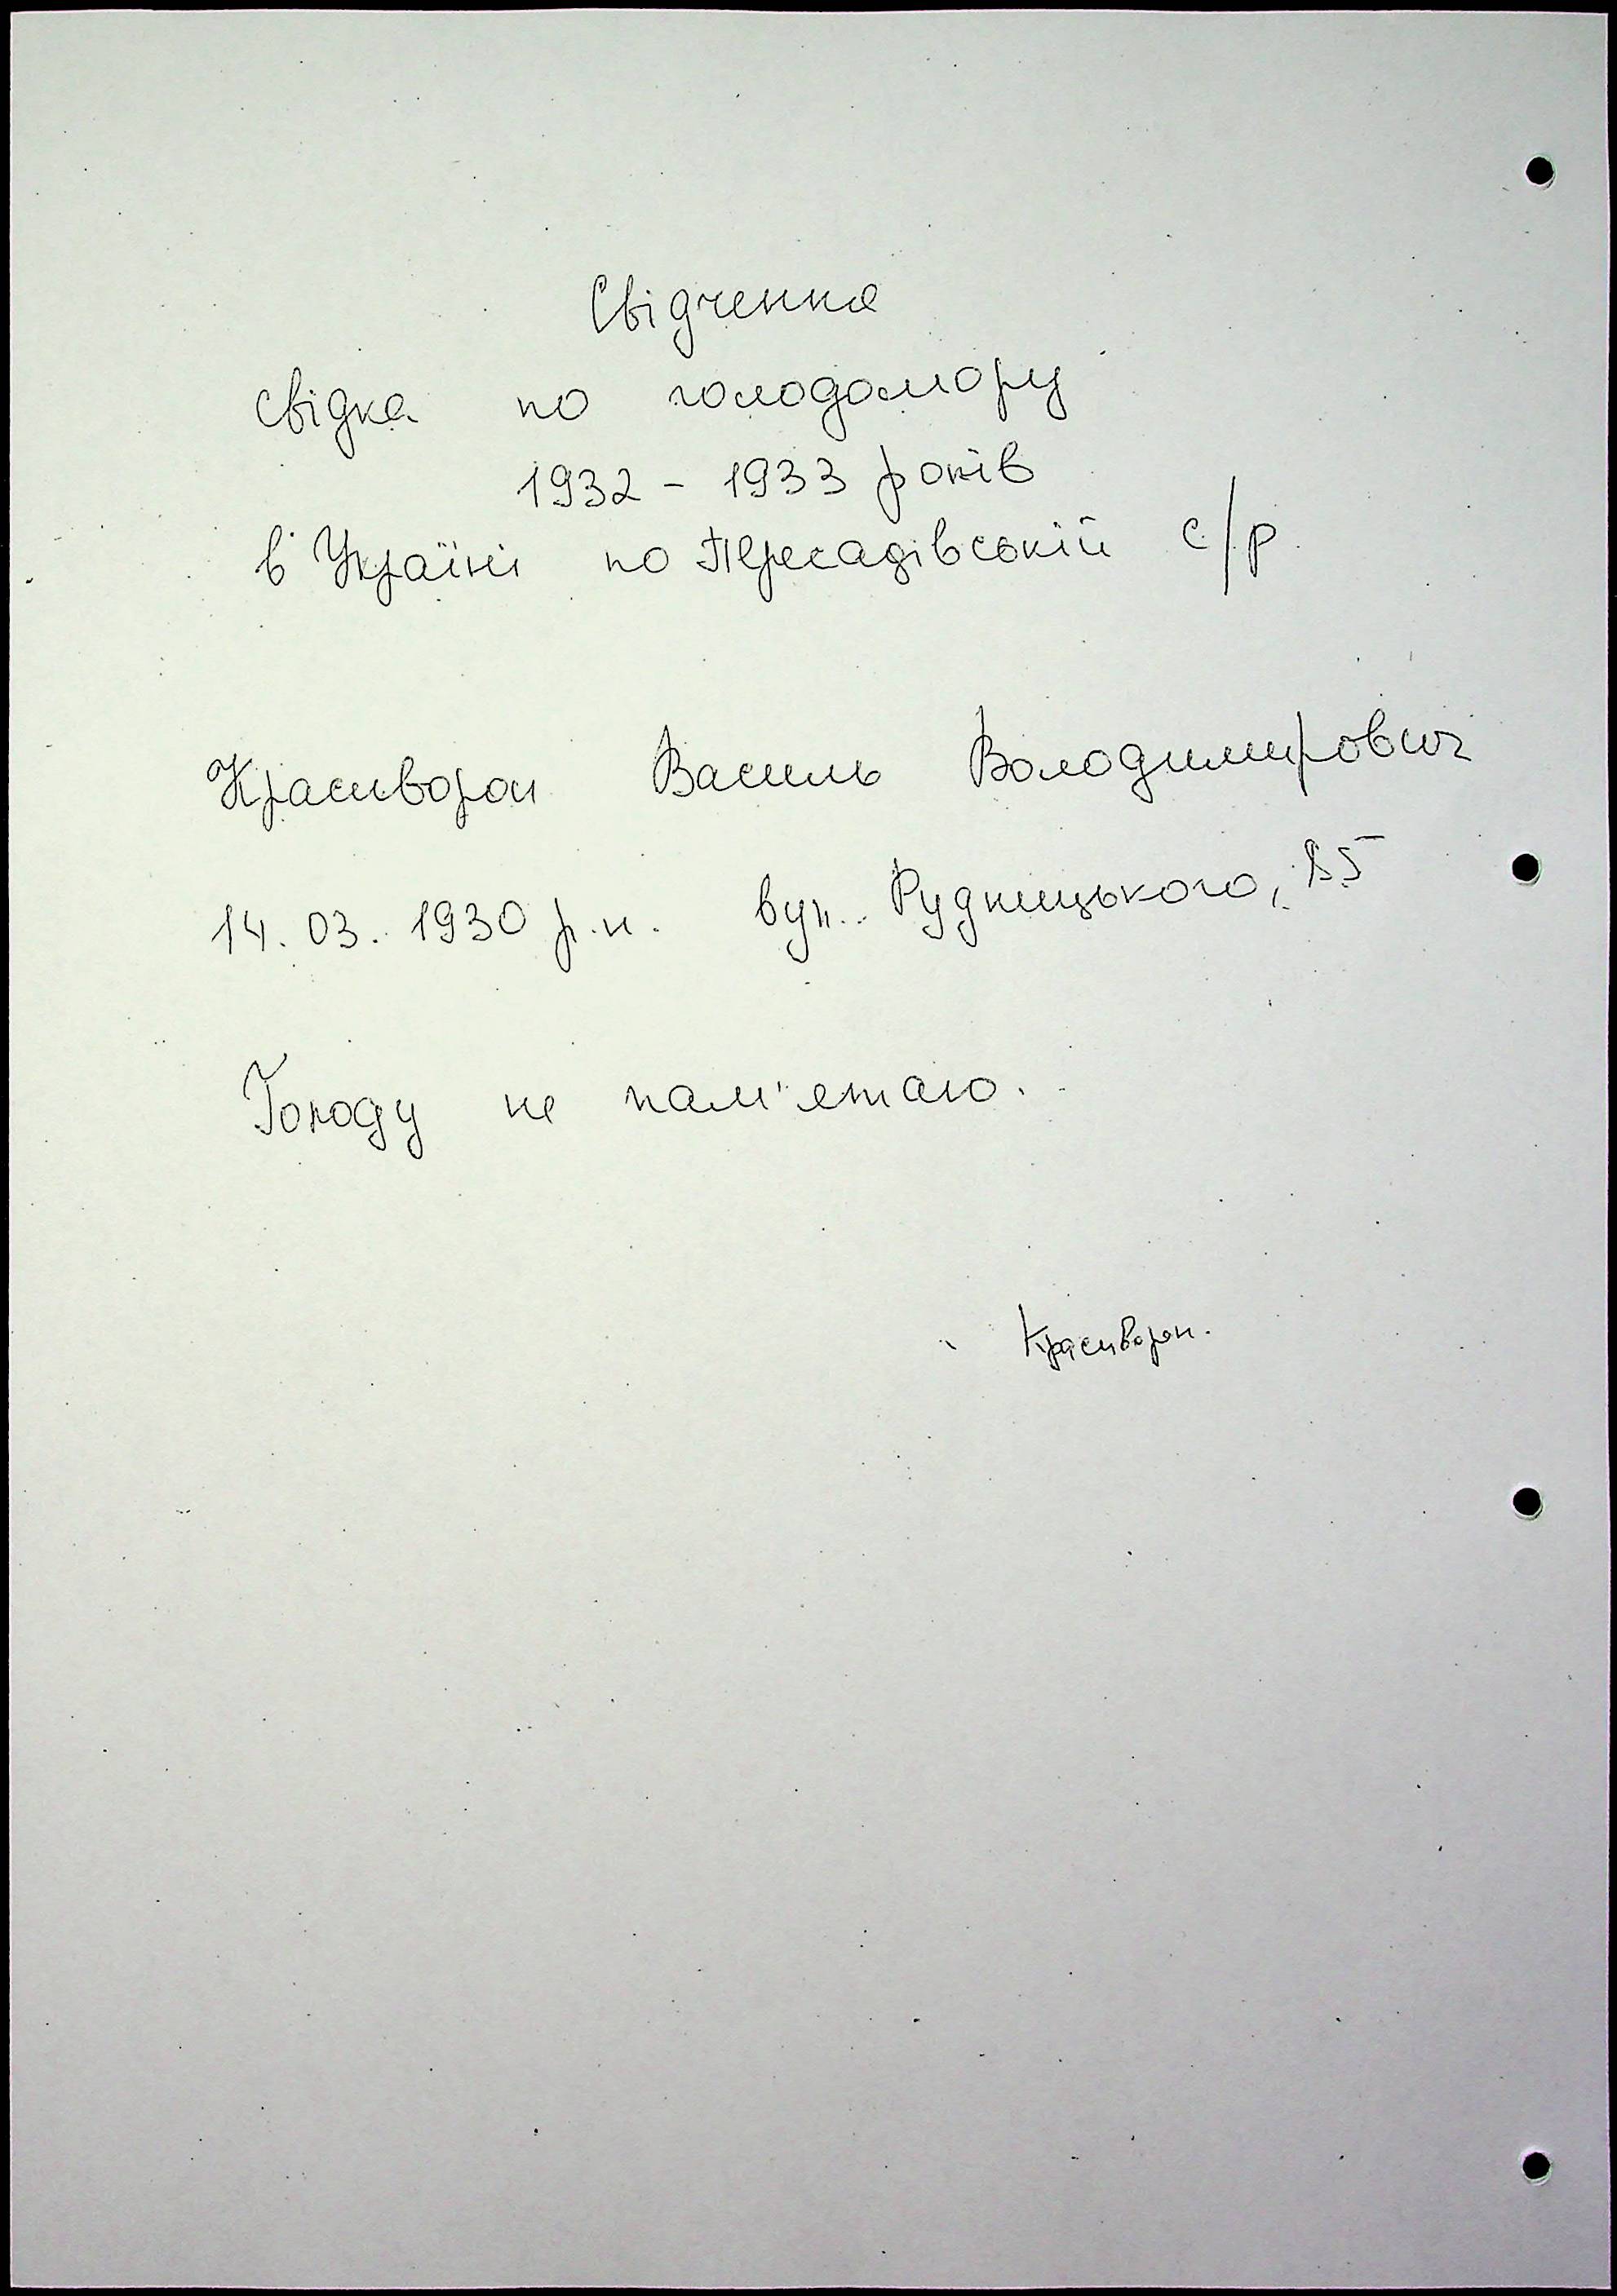 Свідчення
свідка по голодомору
1932 - 1933 років
в Україні по Пересадівській с/р
Красиворон Василь Володимирович
14. 03. 1930 р.н. вул. Рудницького, 85
Голоду не пам'ятаю.
Красиворон.